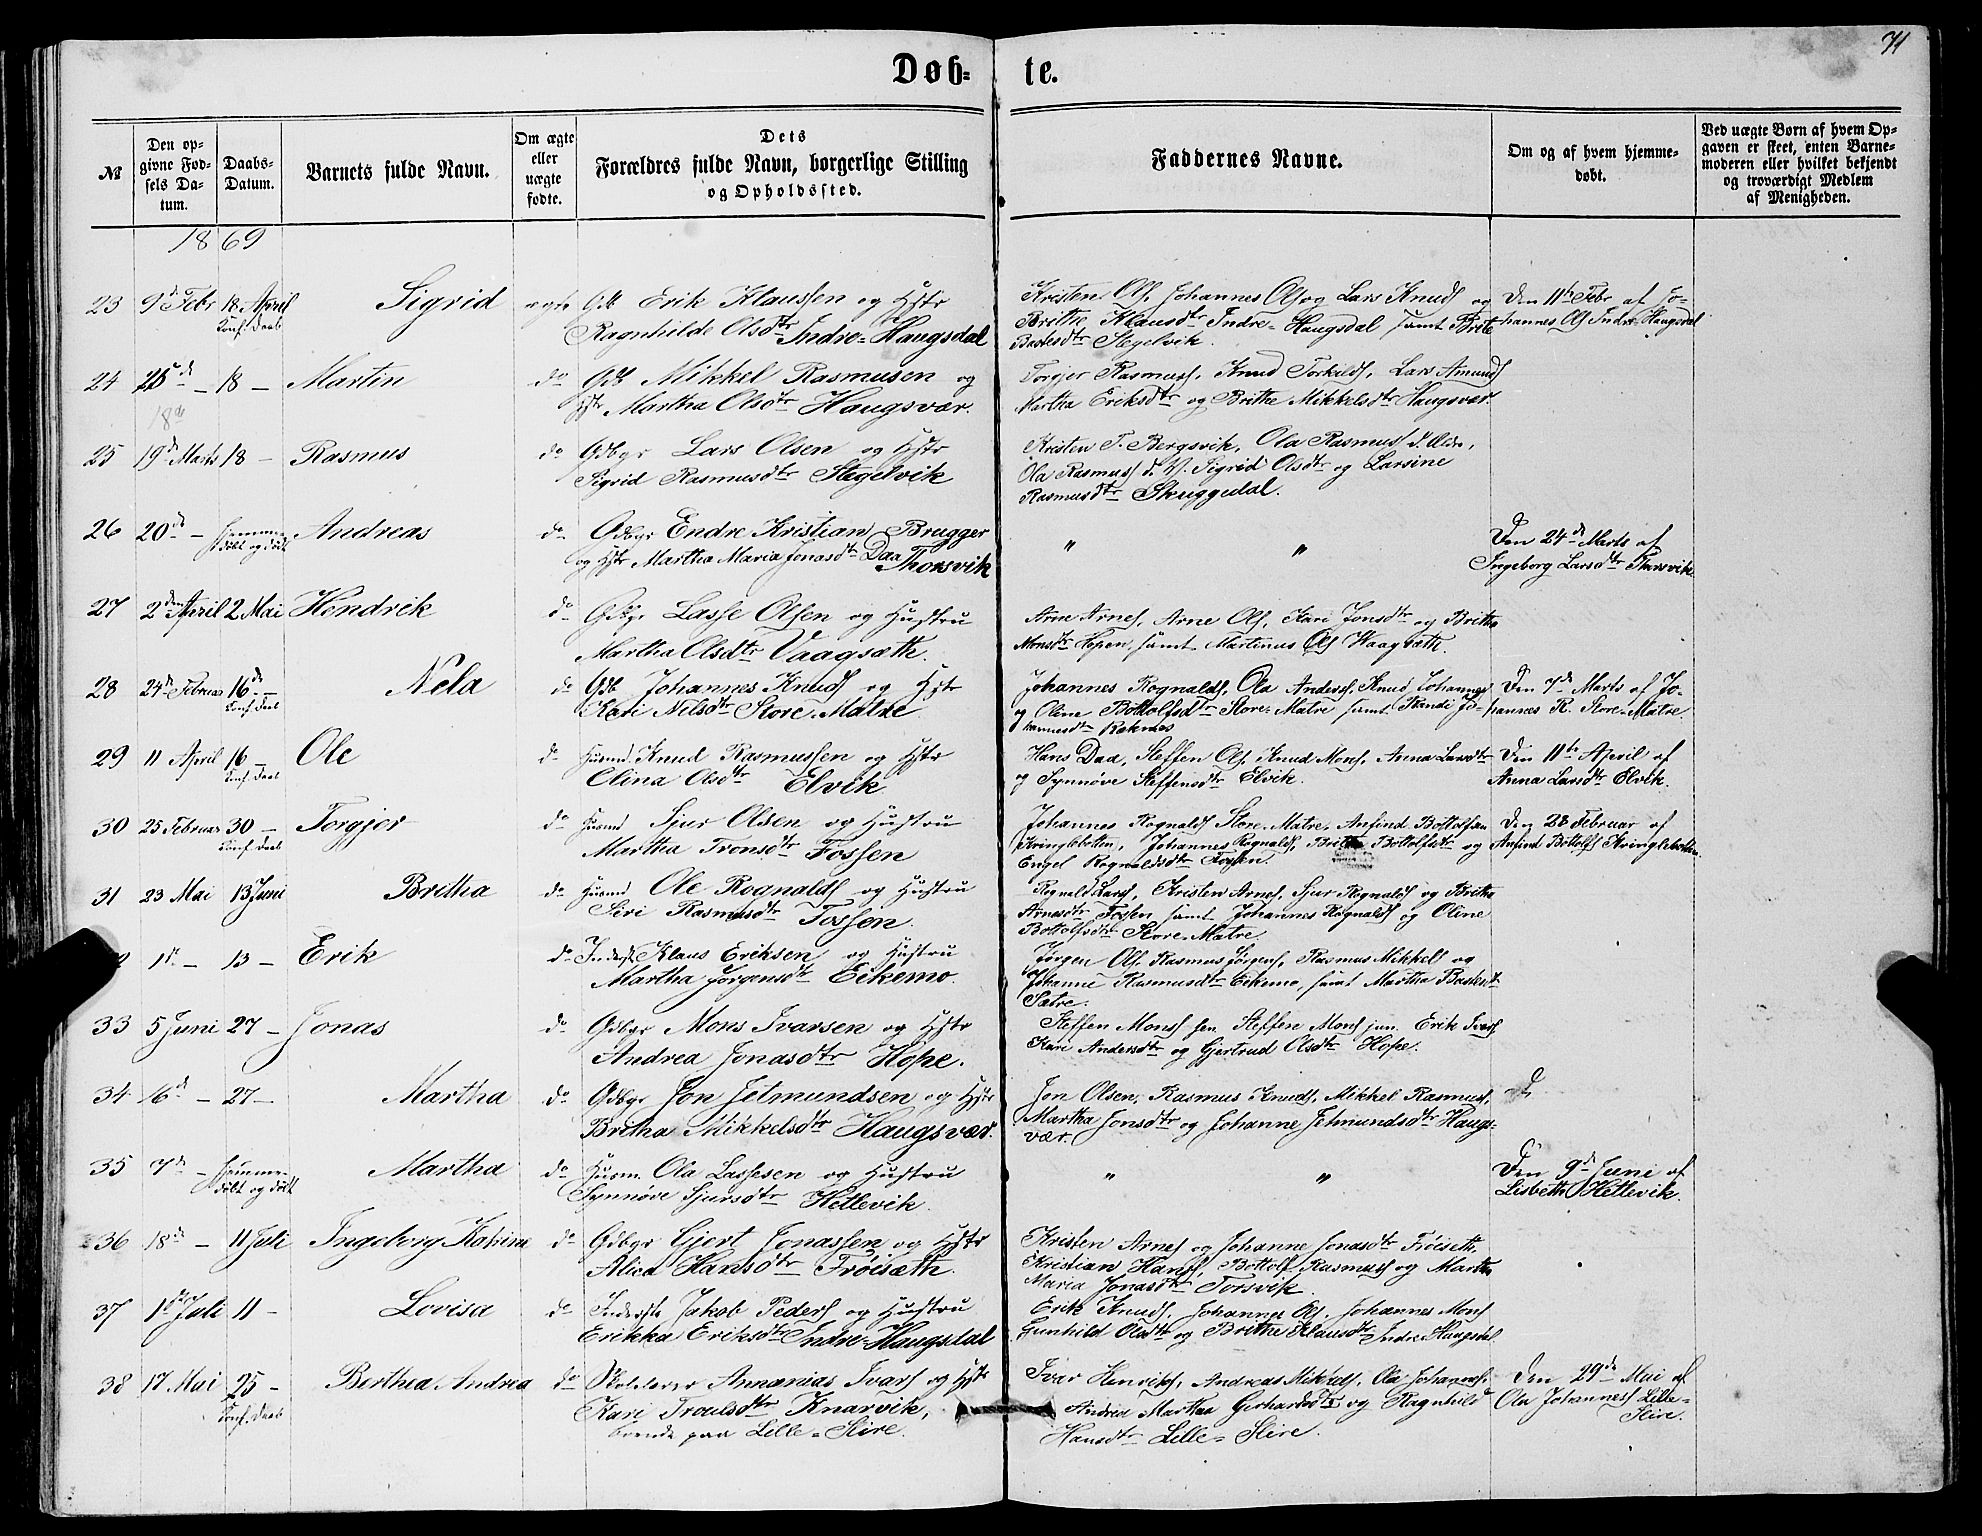 71
Døb- te.
№
Den opgivne Fødsels Datum.
Daabs-Datum.
Barnets fulde Navn.
Om ægte eller uægte fødte.
Dets Forældres fulde Navn, borgerlige Stilling og Opholdssted.
Faddernes Navne.
Om og af hvem hjemmedøbt.
Ved uægte Børn af hvem Opgaven er skeet, enten Barnemoderen eller hvilket bekjendt og troværdigt Medlem af Menigheden.
1869
23 9de Febr 18 April Sigrid ægte Gdb Erik Klaussen og Hstr Kristen Ols, Johannes Ols og Lars Knuds og Den 11te Febr af Jo-
Conf. Daab Ragnhilde Olsdtr Indre-Haugsdal Brithe Klausdtr Indre-Haugsdal samt Brite hannes Ols Indre Haugsdal
Bastesdtr Stegelvik.
24 25de - 18 - Martin do Gdb Mikkel Rasmusen og Torgjer Rasmuss, Knud Torkilds, Lars Amunds
18de Hstr Martha Olsdtr Haugsvær. Martha Eriksdtr og Brithe Mikkelsdtr Haugsvær.
25 19de Marts 18 - Rasmus do Gdbgr Lars Olsen og Hstr Kristen T. Bergsvik, Ola Rasmuss d. Æld.,
Sigrid Rasmusdtr Stegelvik Ola Rasmuss d. Y. Sigrid Olsdtr og Larsine
Rasmusdtr Skuggedal.
26 20de - Hjemme- Andreas do Gdbgr Endre Kristian Brugger " " Den 24de Marts af
døbt og død og Hstr Martha Maria Jonasdtr Daa Thorsvik Ingeborg Larsdtr Thorsvik
27 2den April 2 Mai Hendrik do Gdbgr Lasse Olsen og Hustru Arne Arnes, Arne Ols, Kari Jonsdtr og Brithe
Martha Olsdtr Vaagsæth. Monsdtr Hopen, samt Martinus Ols Vaagsæth.
28 24de Februar 16de - Nela do Gdb Johannes Knuds og Hstr Johannes Rognalds, Ola Anders, Knud Johannes Den 7de Marts af Jo-
Conf. Daab Kari Nilsdtr Store-Matre og Oline Bottolfsdtr Store-Matre samt Randi Jo- hannes R. Store-Matre.
hannesdtr Raknæs
29 11 April 16 - Ole do Husmd Knud Rasmussen og Hstr Hans Daa, Steffen Ols, Knud Mons, Anna Larsdtr Den 11te April af
Conf. Daab Olina Olsdtr Elvik og Synnøve Steffensdtr Elvik. Anna Larsdtr Elvik.
30 25 Februar 30 - Torgjer do Husmd Sjur Olsen og Hustru Johannes Rognalds Store-Matre, Anfind Bottolfsen Den 28 Februar af
Conf. Daab Martha Tronsdtr Fossen Kringlebotten, Johannes Rognalds, Brithe Bottolfsdtr og Anfind Bottolfs Kringlebotten
Engel Rognaldsdtr Fossen.
31 23 Mai 13 Juni Britha do Husmd Ole Rognalds og Hustru Rognald Lars, Kristen Arnes, Sjur Rognalds og Britha
Siri Rasmusdtr Fossen. Arnesdtr Fossen samt Johannes Rognalds og Oline
Bottolfsdtr Store-Matre.
1de - 13 - Erik do Inderst Klaus Eriksen og Hustru Jørgen Ols, Rasmus Jørgens, Rasmus Mikkels og
Martha Jørgensdtr Eikemo. Johanne Rasmusdtr Eikemo, samt Martha Bastesdtr
Sætre.
33 5 Juni 27 - Jonas do Gdbgr Mons Ivarsen og Hstr Steffen Mons sen. Steffen Mons jun. Erik Ivars
Andrea Jonasdtr Hope. Kari Andersdtr og Gjertrud Olsdtr Hope.
34 16de - 27 - Martha do Gdbgr Jon Jetmundsen og Hstr Jon Olsen, Rasmus Knuds, Mikkel Rasmuss,
Britha Mikkelsdtr Haugsvær. Martha Jonsdtr og Johanne Jetmundsdtr Haugs-
vær.
35 7de - Hjemme- Martha do Husm. Ola Lassesen og Hustru " " Den 9de Juni af
døbt og død Synnøve Sjursdtr Hellevik. Lisbeth Hellevik.
36 18de - 11 Juli Ingeborg Katrina do Gdbgr Gjert Jonassen og Hstr Kristen Arnes og Johanne Jonasdtr Frøiseth,
Alica Hansdtr Frøisæth. Kristian Hans, Bottolf Rasmuss og Martha
Maria Jonasdtr Torsvik.
37 1de Juli 11 - Lovisa do Inderste Jakob Peders og Hustru Erik Knuds, Johannes Ols, Johannes Mons
Erikka Eriksdtr Indre-Haugsdal Gunhild Olsdtr og Brithe Klausdtr Indre Haugsdal.
38 17 Mai 25 - Berthea Andrea do Skolelærer Annanias Ivars og Hstr Iver Henriks, Andreas Mikkels, Ola Johannes, Den 29de Mai af
Conf. Daab Kari Troulsdtr Knarvik, Andrea Martha Gerhardsdtr og Ragnhild Ola Johanness Lille-
boende paa Lille-Skire. Hansdtr Lille-Skire. Skire.